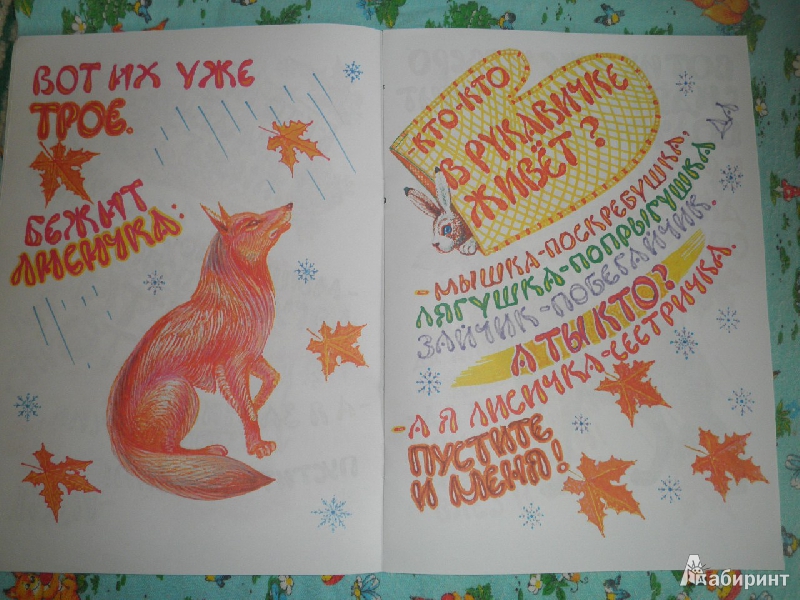 ВОТ ИХ УЖЕ
ТРОЕ.
БЕЖИТ
ЛИСИЧКА:
-КТО-КТО
В РУКАВИЧКЕ
ЖИВЁТ?
- МЫШКА-ПОСКРЕБУШКА,
ЛЯГУШКА-ПОПРЫГУШКА ДА
ЗАЙЧИК-ПОБЕГАЙЧИК.
А ТЫ КТО?
- А Я ЛИСИЧКА-СЕСТРИЧКА.
ПУСТИТЕ
И МЕНЯ!
Лабиринт